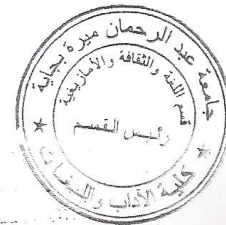 جامعة عبد الرحمان ميرة بجاية
قسم اللغة والثقافة والأمازيغية
رئيس القسم
كلية الآداب واللغات